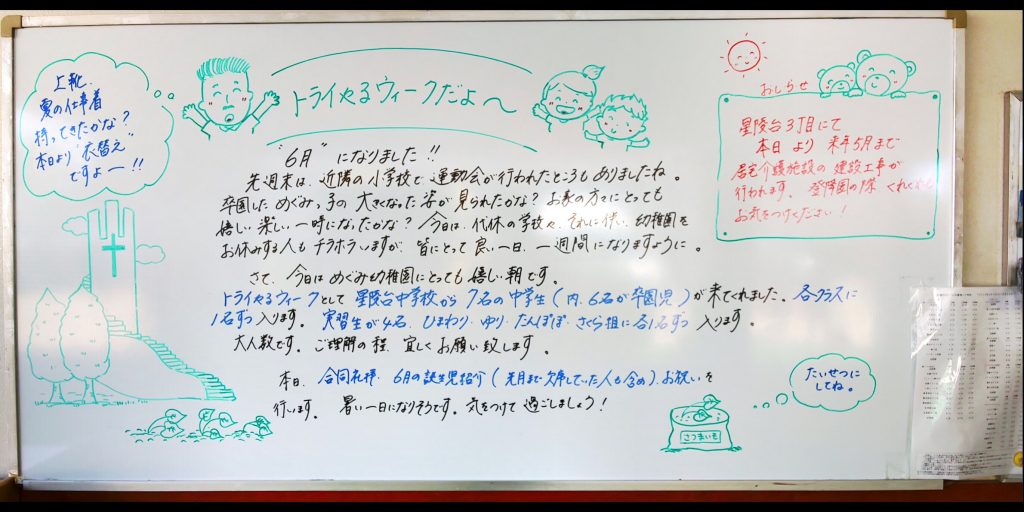 上靴、
夏の仕事着
持ってきたかな？
本日より"衣替え"
ですよー!!
トライやるウィークだよ〜
おしらせ
星陵台3丁目にて
本日より 来年5月まで
居宅介護施設の建設工事が
行われます。登降園の際 くれぐれも
お気をつけください！
"6月"になりました!!
先週末は、近隣の小学校で運動会が行われたところもありましたね。
卒園しためぐみっ子の大きくなった姿が見られたかな？お家の方々にとっても
嬉しい楽しい一時になったかな？今日は、代休の学校々、それに伴い、幼稚園を
お休みする人もチラホラいますが、皆にとって良い一日、一週間になりますように。
さて、今日はめぐみ幼稚園にとっても嬉しい朝です。
トライやるウィークとして星陵台中学校から7名の中学生(内、6名が卒園児)が来てくれました。各クラスに
1名ずつ入ります。実習生が4名、ひまわり・ゆり・たんぽぽ・さくら組に各1名ずつ入ります。
大人数です。ご理解の程、宜しくお願い致します。
本日、合同礼拝、6月の誕生児紹介(先月まで欠席していた人も含め)、お祝いを
行います。暑い一日になりそうです。気をつけて過ごしましょう！
たいせつに
してね。
さつまいも